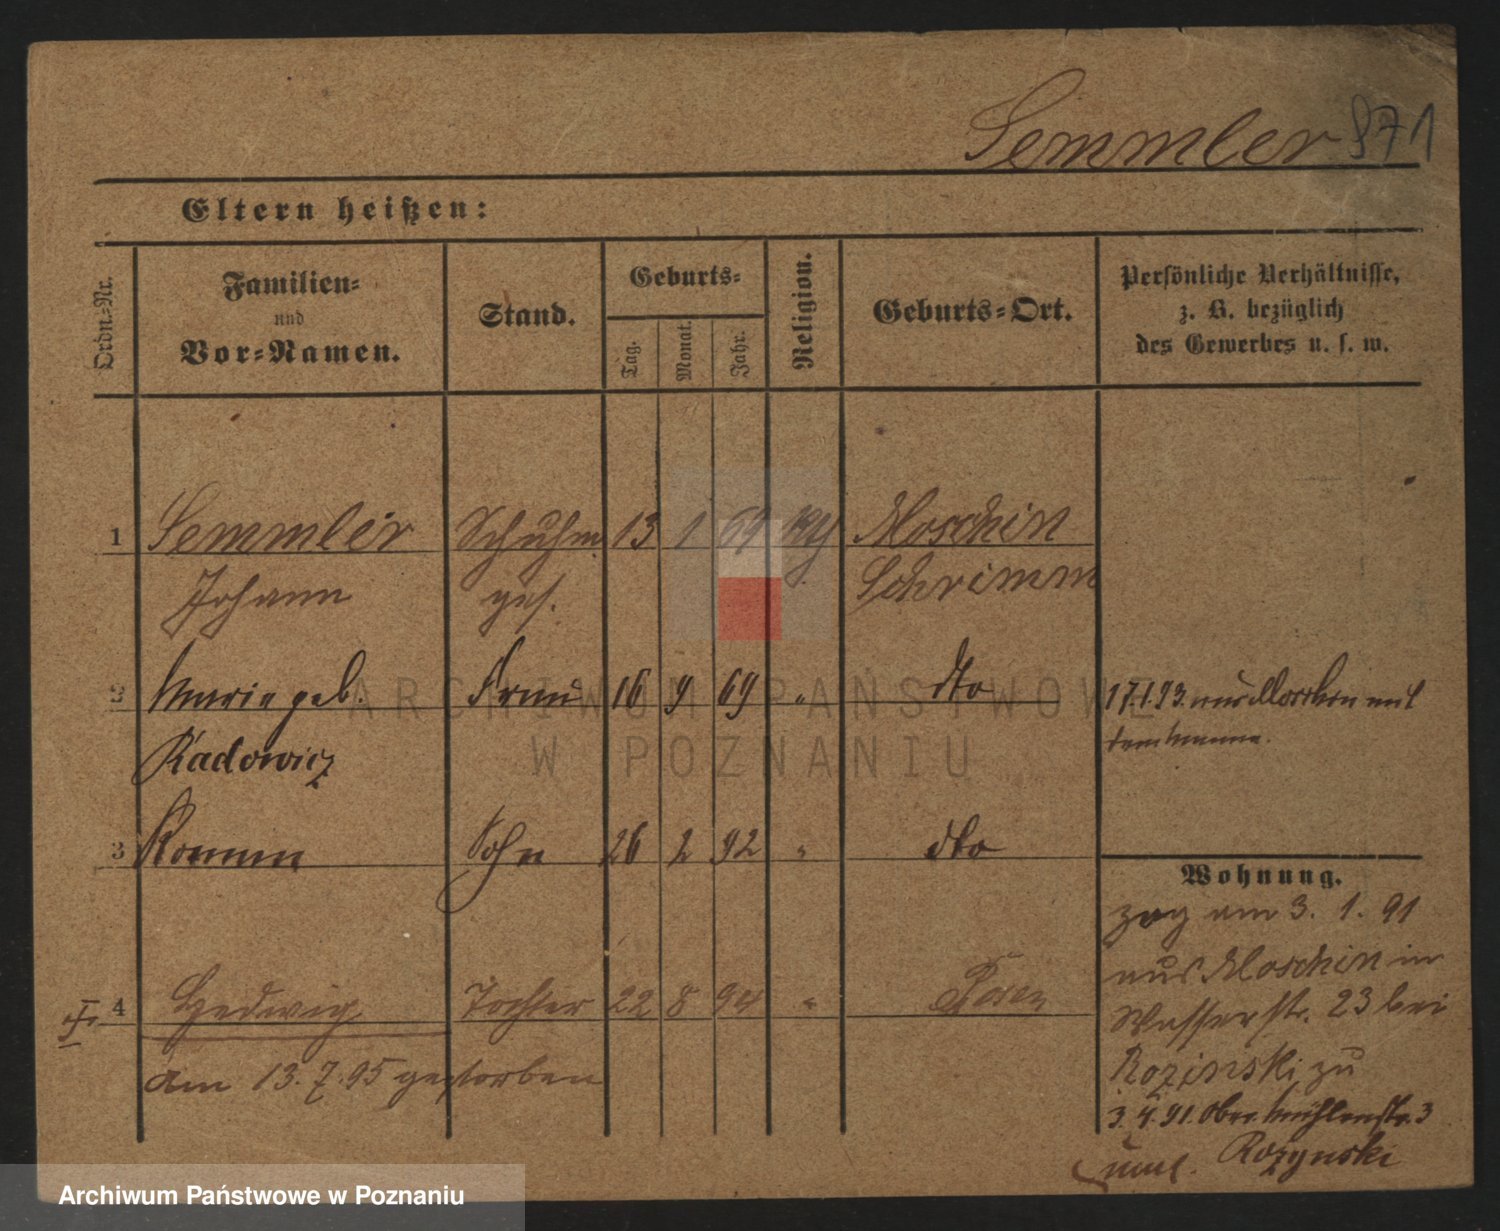 Semmler 871
Eltern heißen:
Ordn.-Nr.
Familien-
und
Vor-Namen.
Stand.
Geburts-
Tag.
Monat.
Jahr.
Religion.
Geburts-Ort.
Persönliche Verhältnisse,
z. B. bezüglich
des Gewerbes u. s. w.
1 Semmler Schuhm. 13 1 69 Moschin
Johann ges. Schrimm
2 Marie geb. Frau 16 9 69 " dto 17.1.93. aus Moschin mit
Radowicz
3 Roman Sohn 26 2 92 " dto
Wohnung.
zog am 3. 1. 91
aus Moschin in
4 Hedwig Tochter 22 8 94 " Posen
Wasserstr. 23 bei
am 13.7.95 gestorben
Rozinski zu
3.4.91. Ober Mühlenstr. 3
Rozynski
ARCHIWUM PAŃSTWOWE
W POZNANIU
Archiwum Państwowe w Poznaniu